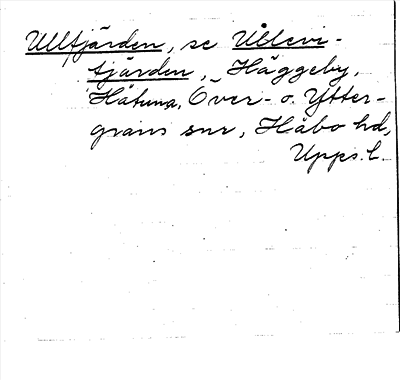 Ullfjärden, se Ullevi-
fjärden, Häggeby,
Håtuna, Över- o. Ytter-
grans snr, Håbo hd,
Upps. l.